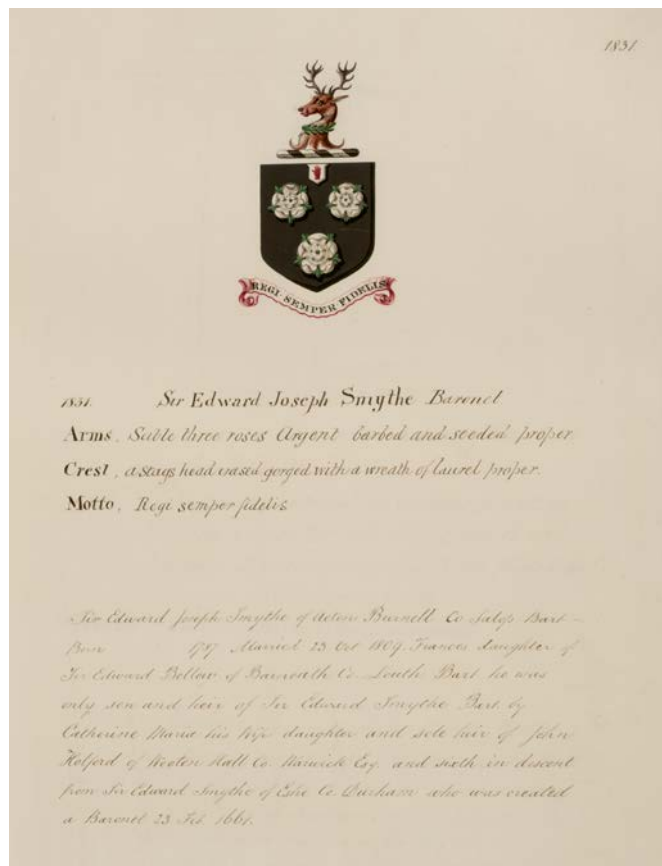 1831.
REGI·SEMPER·FIDELIS
1831. Sir Edward Joseph Smythe Baronet
Arms, Sable three roses Argent barbed and seeded proper
Crest, a stags head erased gorged with a wreath of laurel proper.
Motto, Regi semper fidelis
Sir Edward Joseph Smythe of Acton Burnell Co Salop Bart
Born 1787 Married 23 Oct 1809. Frances daughter of
Sir Edward Bellow of Co. Louth Bart. he was
only son and heir of Sir Edward Smythe Bart. by
Catherine Maria his wife daughter and sole heir of John
Holford of Wooten Hall Co. Warwick Esq. and sixth in descent
from Sir Edward Smythe of Eshe Co. Durham who was created
a Baronet 23 Feb. 1661.